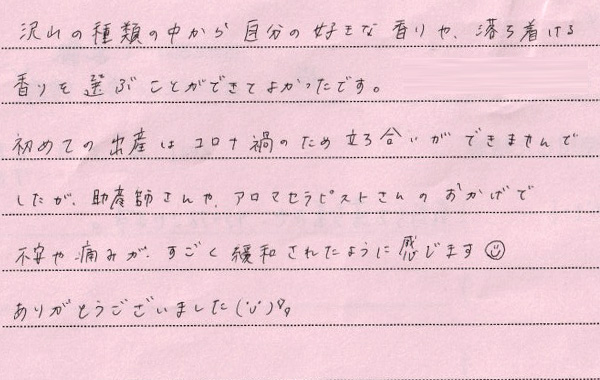 沢山の種類の中から自分の好きな香りや、落ち着ける
香りを選ぶことができてよかったです。
初めての出産はコロナ禍のため立ち合いができませんで
したが、助産師さんや、アロマセラピストさんのおかげで
不安や痛みが、すごく緩和されたように感じます☺
ありがとうございました(¨)